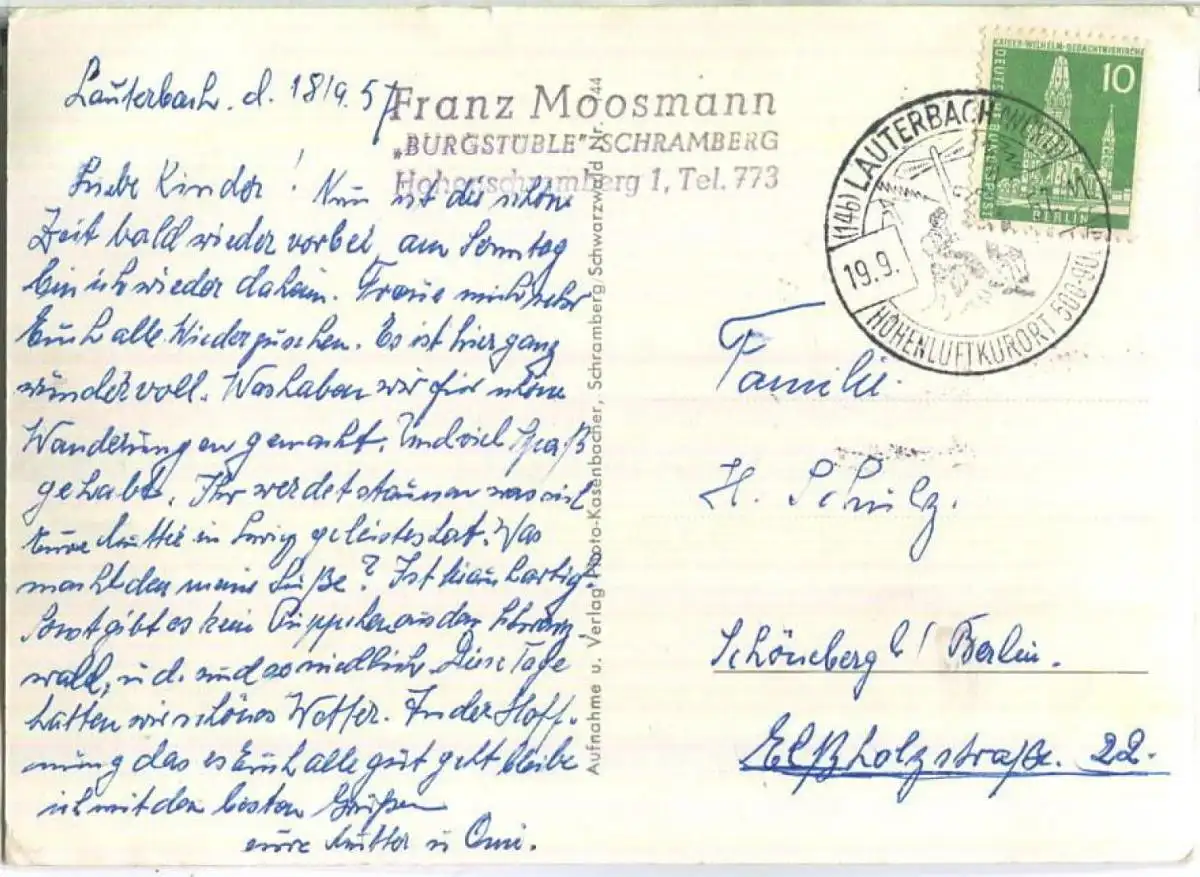 Lauterbach. d. 18/9.57
Franz Moosmann
„BURGSTÜBLE" SCHRAMBERG
Hohenschramberg 1, Tel. 773
Liebe Kinder! Nun ist die schöne
Zeit bald wieder vorbei, am Sonntag
bin ich wieder daheim. Freue mich sehr
Euch alle Wiederzusehen. Es ist hier ganz
wundervoll. Was haben wir für schöne
Wanderungen gemacht. Und viel Spaß
gehabt. Ihr werdet staunen was viel
Eure Mutter in geleistet hat. Was
macht den meine Süße? Ist sie auch artig.
Sonst gibt es kein Püppchen aus den Schwarz
wald, u d. sind so niedlich. Diese Tage
hatten wir schönes Wetter. In der Hoff-
nung das es Euch alle gut geht bleibe
ich mit den besten Grüßen
eure Mutter u Omi.
Aufnahme u. Verlag Photo-Kasenbacher, Schramberg/Schwarzwald Nr. 44
KAISER-WILHELM-GEDÄCHTNISKIRCHE
10
DEUTSCHE BUNDESPOST
BERLIN
(14b) LAUTERBACH
19.9.
HÖHENLUFTKURORT 500-90
Familie.
H. Schulz.
Schöneberg b/ Berlin.
Elßholzstraße. 22.